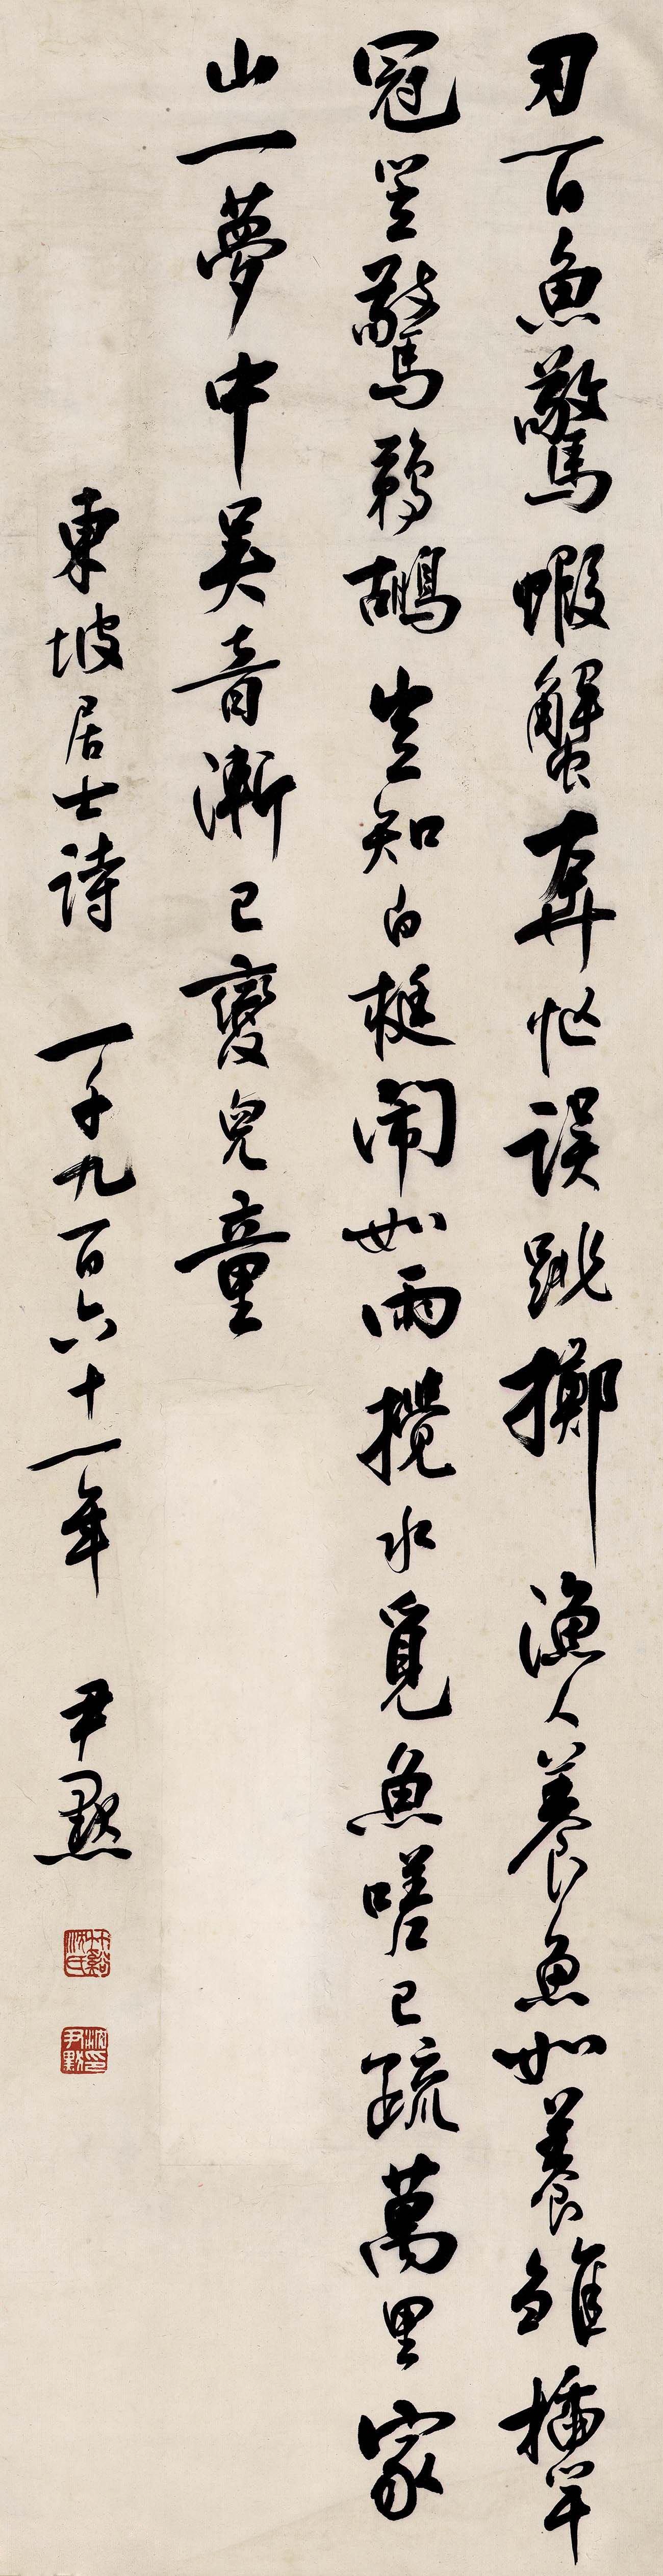 刃百魚驚蝦蟹奔忙誤跳擲漁人養魚如養雛插竿
冠笠驚鵜鶘豈知白梃闹如雨攪水覓魚嗟已疏萬里家
山一夢中吴音漸已變兒童
東坡居士詩 一千九百六十一年 尹默
竹谿沈氏
沈尹默印